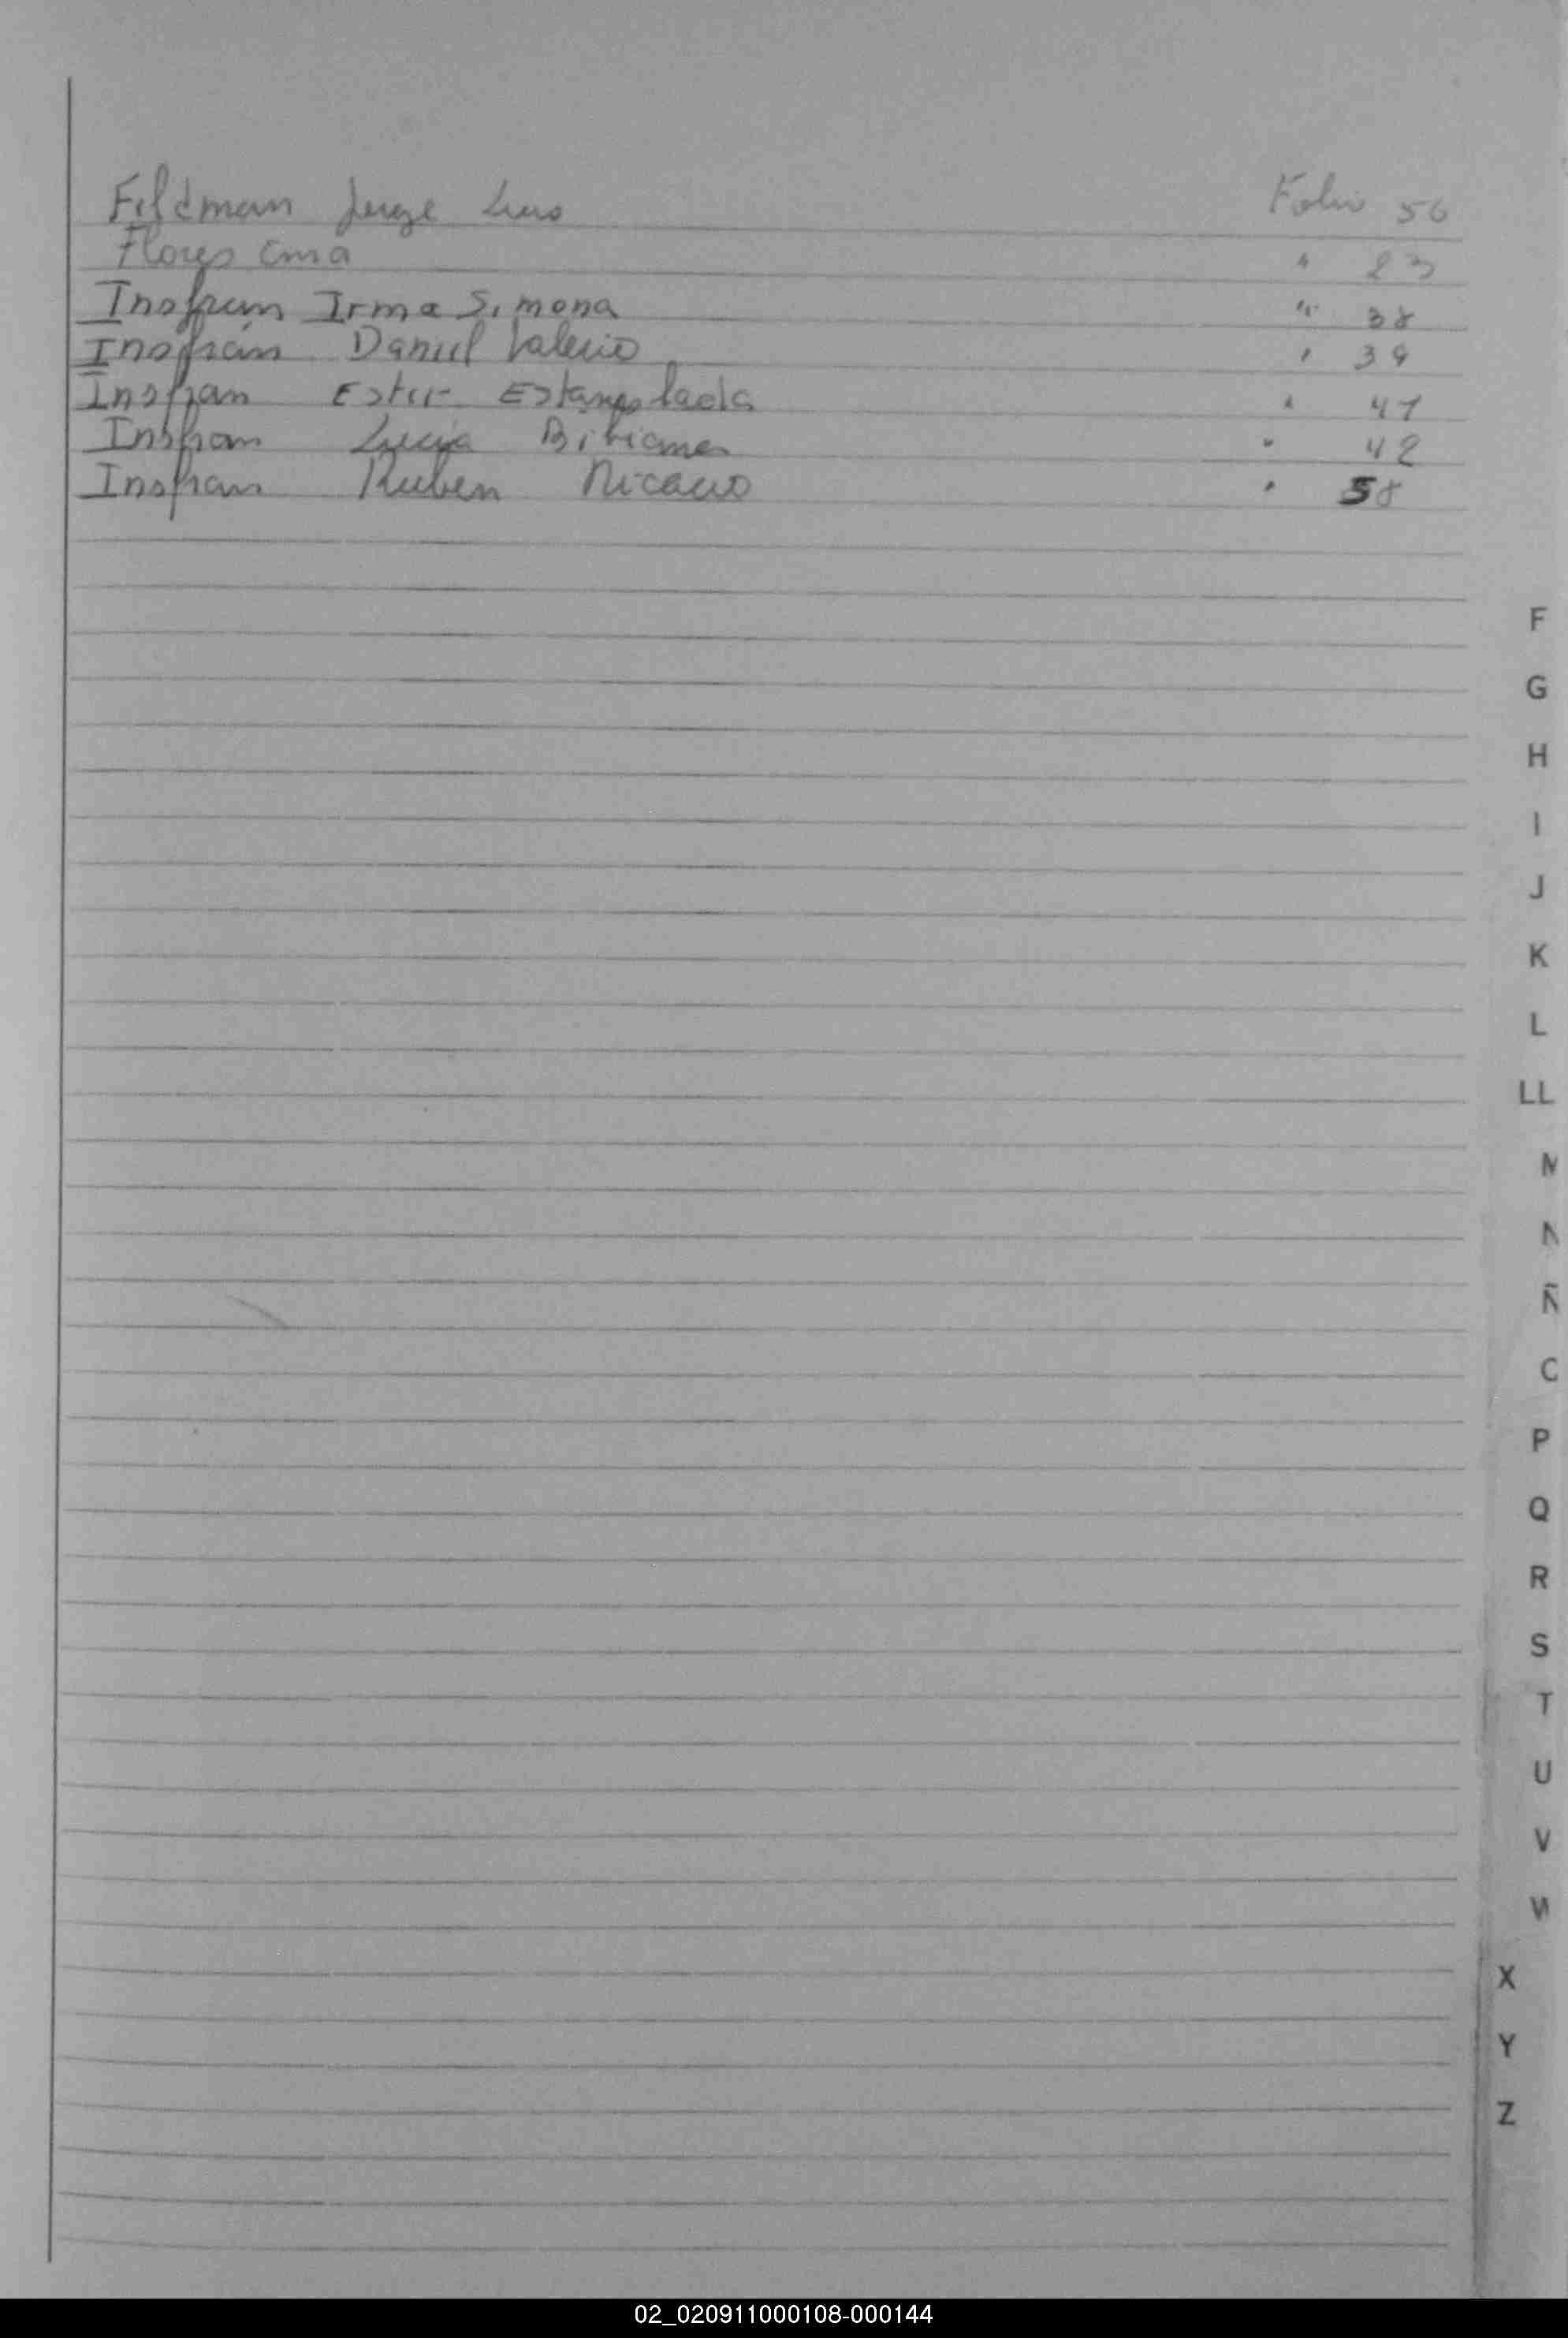 Feldman Jorge Luis Folio 56
Flores Ema " 23
Insfran Irma Simona " 38
Insfrán Daniel Valerio " 39
Insfran Ester " 41
Insfran Lucia Bibiana " 42
Insfran Ruben Nicacio " 58
F
G
H
I
J
K
L
LL
M
N
Ñ
O
P
Q
R
S
T
U
V
W
X
Y
Z
02_020911000108-000144